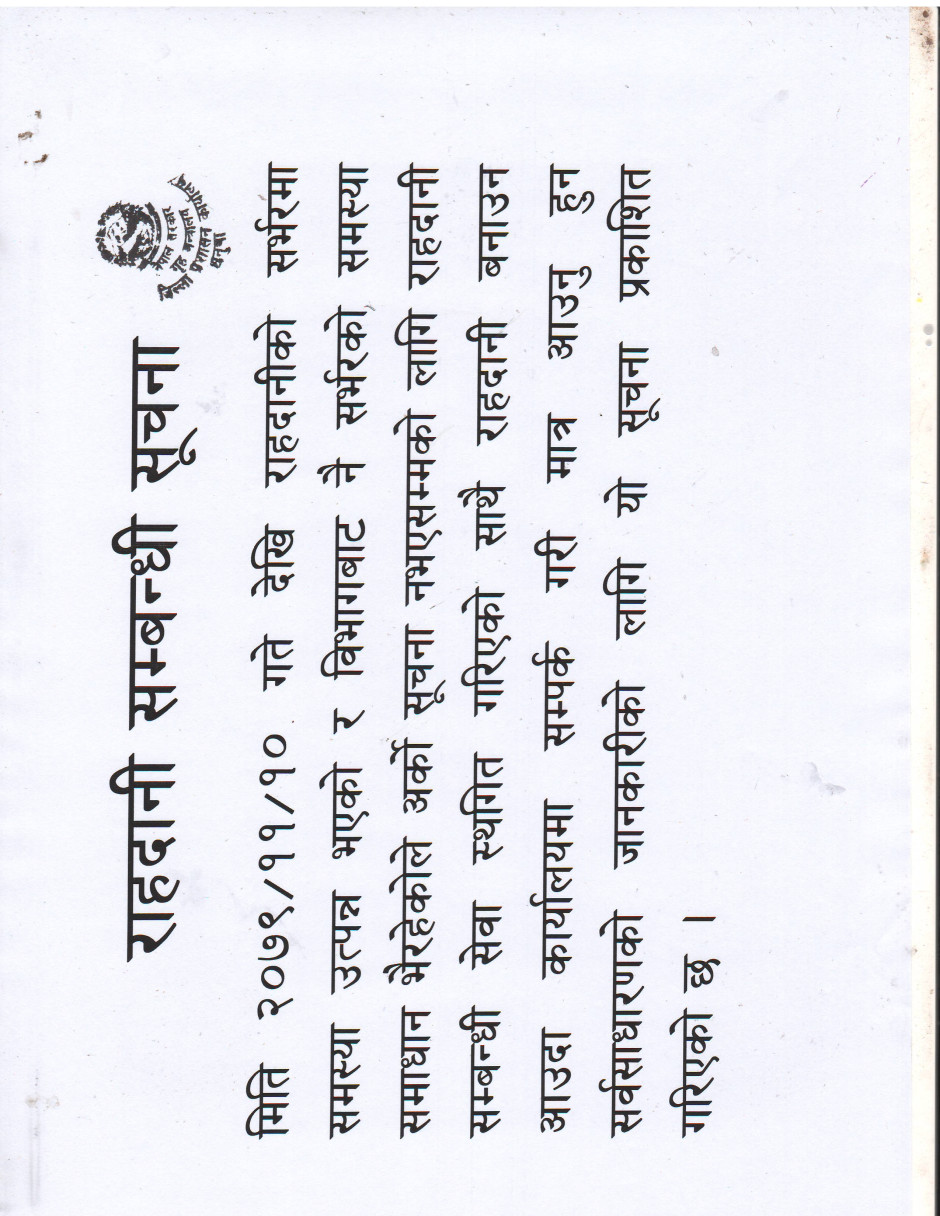 राहदानी सम्बन्धी सूचना
नेपाल सरकार
गृह मन्त्रालय
जिल्ला प्रशासन कार्यालय
धनुषा
मिति २०७९/११/१० गते देखि राहदानीको सर्भरमा
समस्या उत्पन्न भएको र विभागबाट नै सर्भरको समस्या
समाधान भैरहेकोले अर्को सूचना नभएसम्मको लागि राहदानी
सम्बन्धी सेवा स्थगित गरिएको साथै राहदानी बनाउन
आउदा कार्यालयमा सम्पर्क गरी मात्र आउनु हुन
सर्वसाधारणको जानकारीको लागि यो सूचना प्रकाशित
गरिएको छ ।